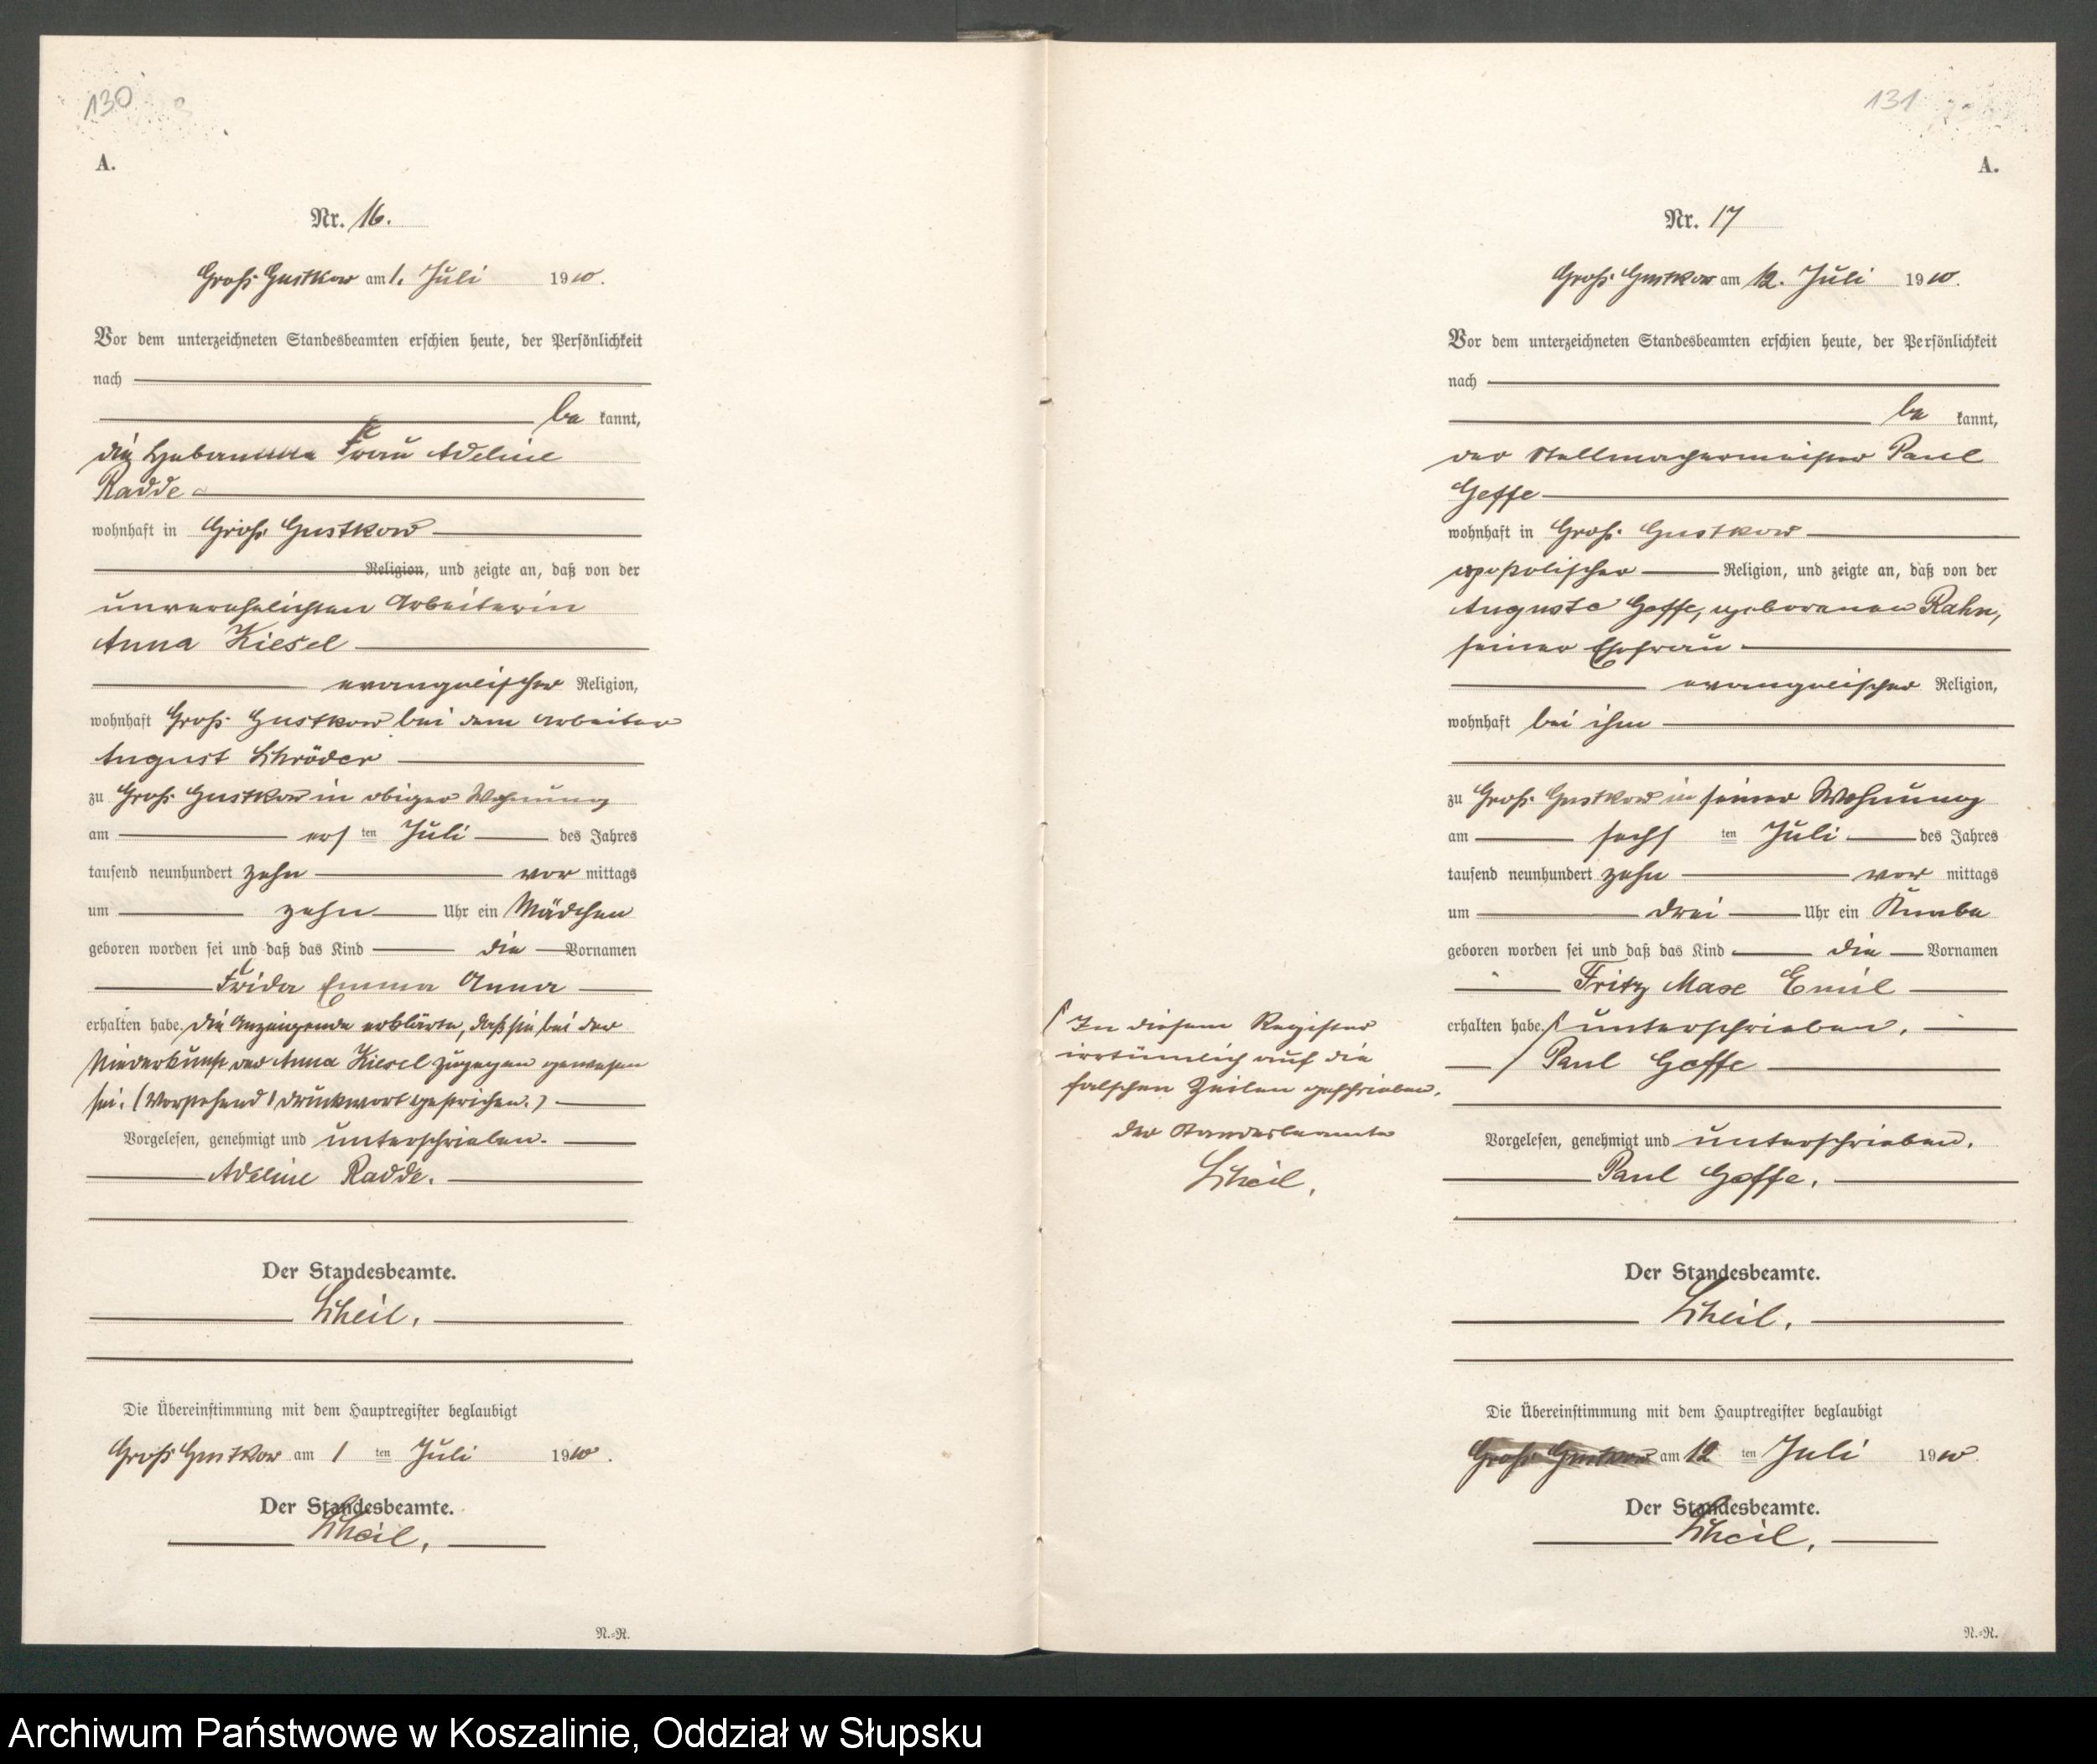 130
A.
Nr. 16.
Groß Gustkow am 1. Juli 1910.
Vor dem unterzeichneten Standesbeamten erschien heute, der Persönlichkeit
nach
be kannt,
die Hebamme Frau Adeline
Radde
wohnhaft in Groß Gustkow
Religion, und zeigte an, daß von der
unverehelichten Arbeiterin
Anna Kiesel
evangelischer Religion,
wohnhaft Groß Gustkow bei dem Arbeiter
August Schröder
zu Groß Gustkow in obiger Wohnung
am ers ten Juli des Jahres
tausend neunhundert zehn vor mittags
um zehn Uhr ein Mädchen
geboren worden sei und daß das Kind die Vornamen
Frida Emma Anna
erhalten habe. Die Anzeigende erklärte, daß sie bei der
Niederkunft der Anna Kiesel zugegen gewesen
sei. (Vorstehend 1 Druckwort gestrichen.)
Vorgelesen, genehmigt und unterschrieben.
Adeline Radde.
Der Standesbeamte.
Scheil.
Die Übereinstimmung mit dem Hauptregister beglaubigt
Groß Gustkow am 1 ten Juli 1910.
Der Standesbeamte.
Scheil.
N.=R.
131
A.
Nr. 17
Groß Gustkow am 12. Juli 1910.
Vor dem unterzeichneten Standesbeamten erschien heute, der Persönlichkeit
nach
be kannt,
der Stellmachermeister Paul
Geffe
wohnhaft in Groß Gustkow
apostolischer Religion, und zeigte an, daß von der
Auguste Geffe, geborenen Rahn,
seiner Ehefrau
evangelischer Religion,
wohnhaft bei ihm
zu Groß Gustkow in seiner Wohnung
am sechs ten Juli des Jahres
tausend neunhundert zehn vor mittags
um drei Uhr ein Knabe
geboren worden sei und daß das Kind die Vornamen
Fritz Max Emil
erhalten habe. / unterschrieben.
/ Paul Geffe
Vorgelesen, genehmigt und unterschrieben.
Paul Geffe.
/ In diesem Register
irrtümlich auf die
falschen Zeilen geschrieben.
Der Standesbeamte
Scheil.
Der Standesbeamte.
Scheil.
Die Übereinstimmung mit dem Hauptregister beglaubigt
Groß Gustkow am 12 ten Juli 1910.
Der Standesbeamte.
Scheil.
N.=R.
Archiwum Państwowe w Koszalinie, Oddział w Słupsku